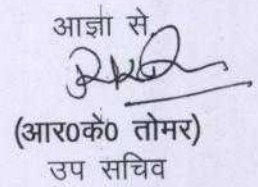 आज्ञा से,
(आर0के0 तोमर)
उप सचिव